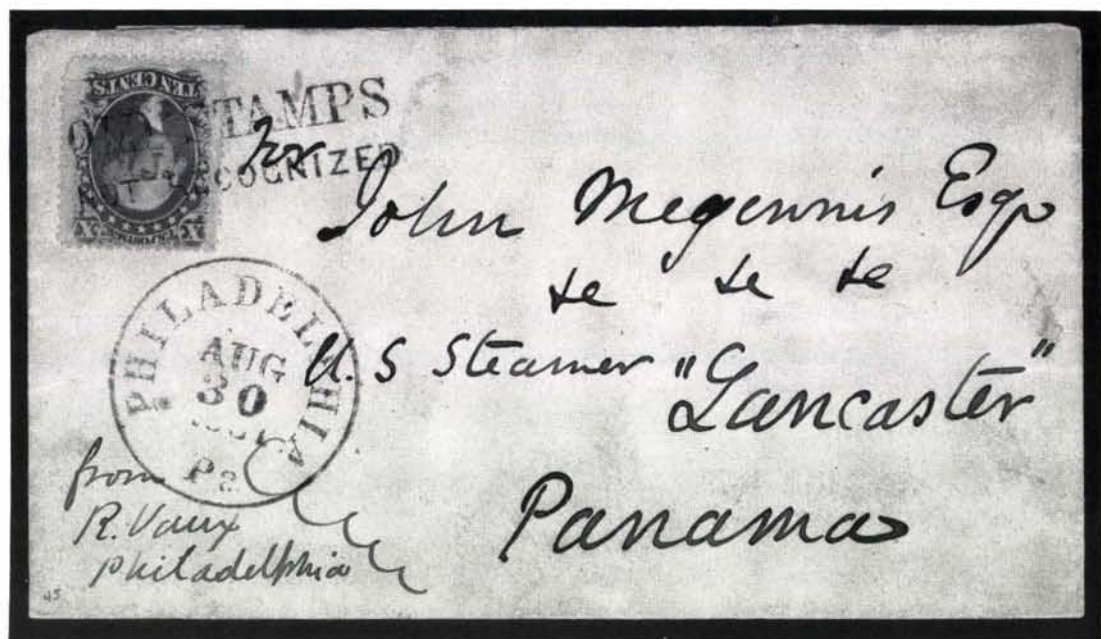 TEN CENTS
OLD STAMPS
NOT RECOGNIZED
For
John Megennis Esqr
&c &c &c
U.S Steamer "Lancaster"
Panama
PHILADELPHIA
AUG
30
Pa.
from
R. Vaux
Philadelphia
45